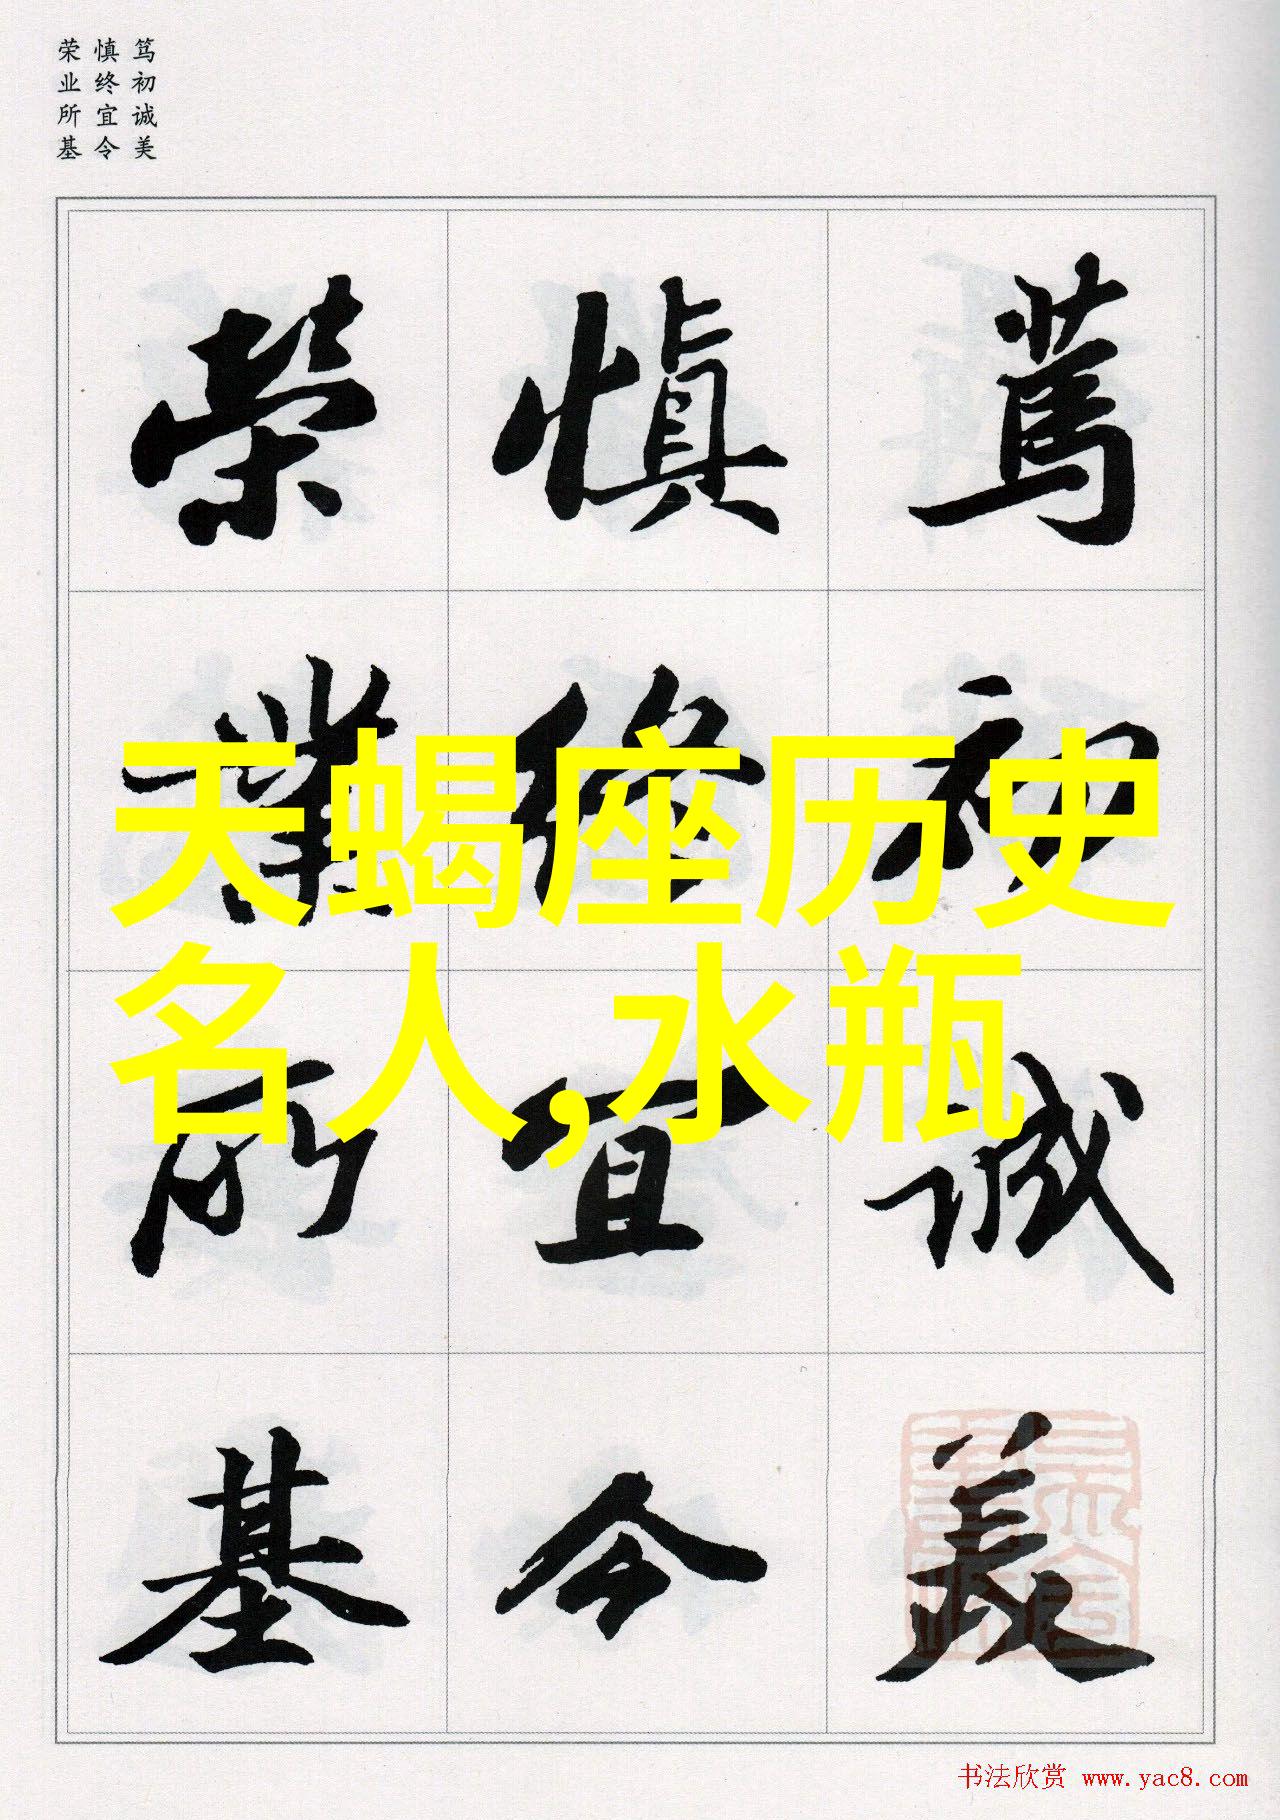 笃初诚美
慎终宜令
荣业所基
篤初誠美
慎終宜令
榮業所基
天蝎座历史
名人,水瓶
书法欣赏 www.yac8.com